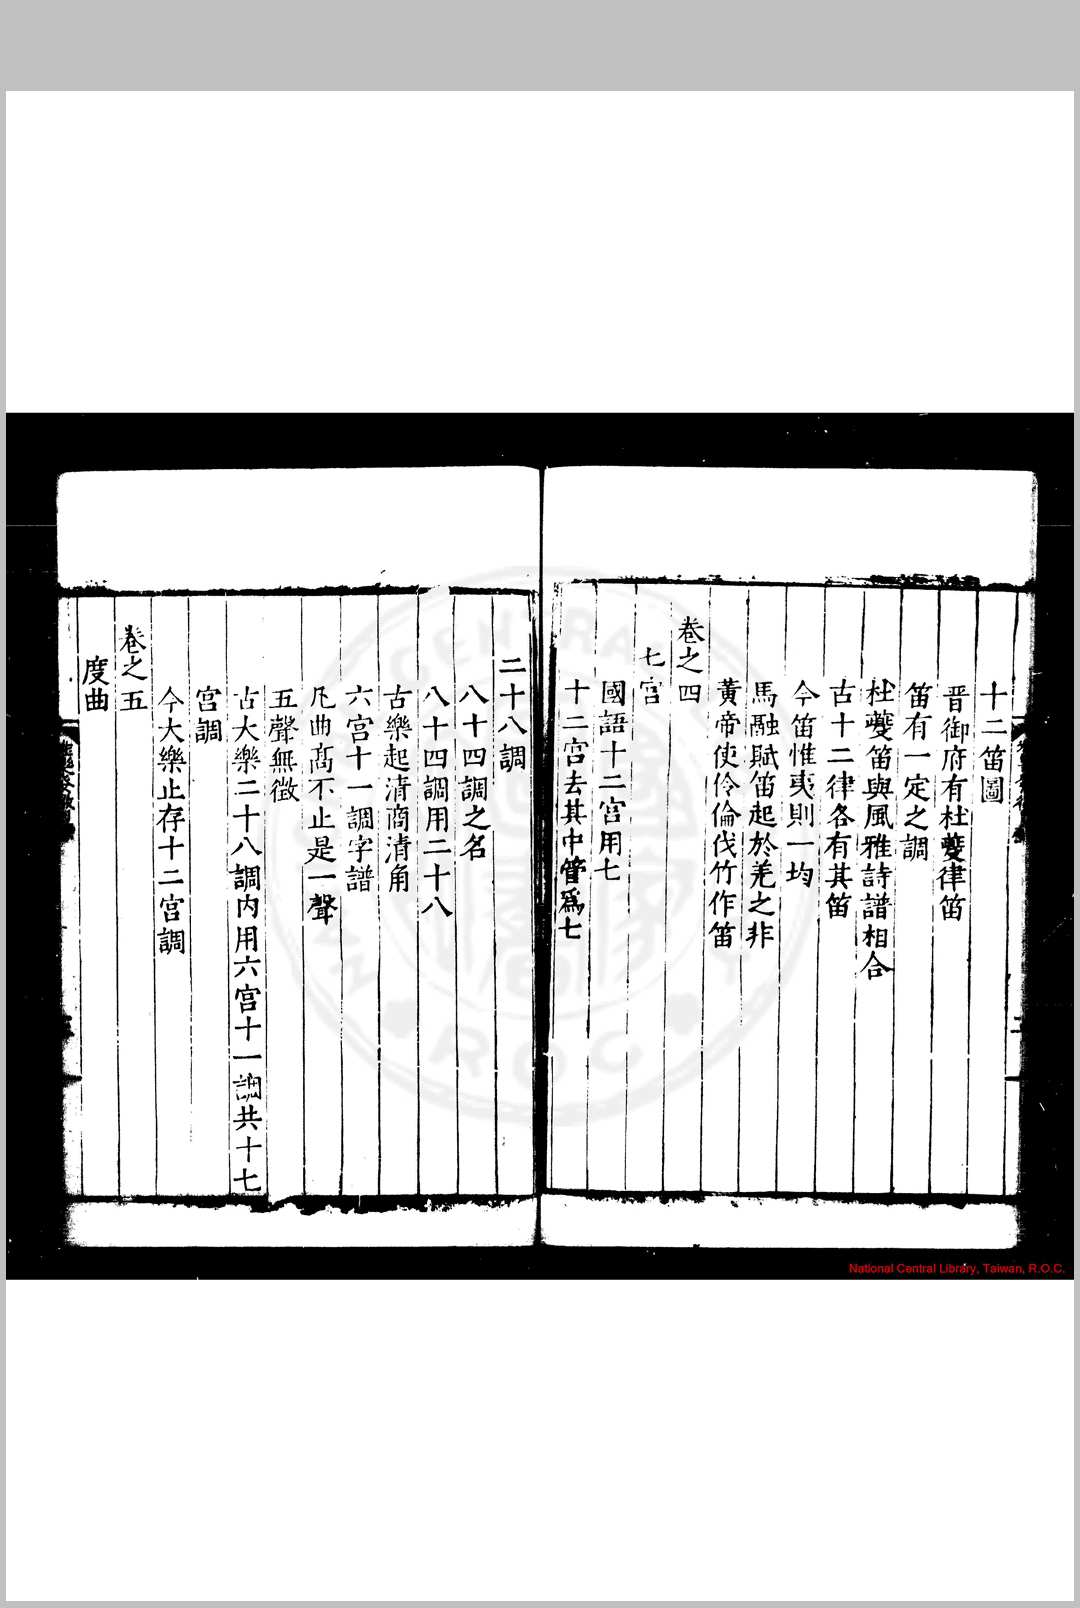 十二笛圖
晋御府有杜夔律笛
笛有一定之調
杜夔笛與風雅詩譜相合
古十二律各有其笛
今笛惟夷則一均
馬融賦笛起於羌之非
黃帝使伶倫伐竹作笛
卷之四
七宮
國語十二宮用七
十二宮去其中管爲七
二十八調
八十四調之名
八十四調用二十八
古樂起清商清角
六宮十一調字譜
凡曲髙不止是一聲
五聲無徵
古大樂二十八調内用六宮十一調共十七
宮調
今大樂止存十二宮調
卷之五
度曲
National Central Library, Taiwan, R.O.C.